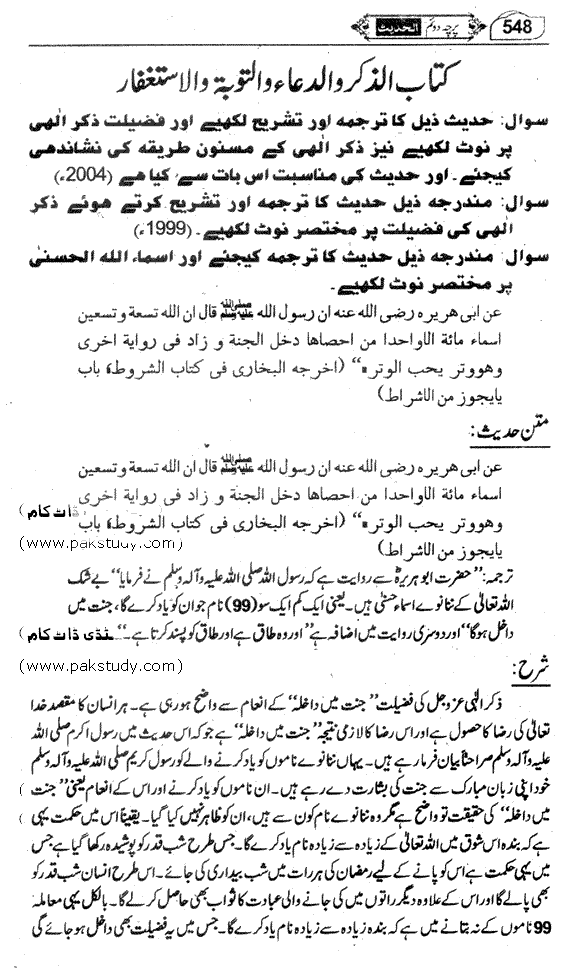 548 الحدیث پرچہ دوئم
کتاب الذکر والدعاء والتوبة والاستغفار
سوال: حدیث ذیل کا ترجمہ اور تشریح لکھیے اور فضیلت ذکر الٰہی
پر نوٹ لکھیے نیز ذکر الٰہی کے مسنون طریقہ کی نشاندھی
کیجئے۔ اور حدیث کی مناسبت اس بات سے کیا ھے (2004ء)
سوال: مندرجہ ذیل حدیث کا ترجمہ اور تشریح کرتے ھوئے ذکر
الٰھی کی فضیلت پر مختصر نوٹ لکھیے۔ (1999ء)
سوال: مندرجہ ذیل حدیث کا ترجمہ کیجئے اور اسماء اللہ الحسنیٰ
پر مختصر نوٹ لکھیے۔
عن ابی ھریرہ رضی اللہ عنہ ان رسول اللہ ﷺ قال ان اللہ تسعة و تسعین
اسماء مائة الاواحدا من احصاھا دخل الجنة و زاد فی روایة اخری
وھووتر یحب الوتر۔“ (اخرجہ البخاری فی کتاب الشروط، باب
یایجوز من الاشراط)
متن حدیث:
عن ابی ھریرہ رضی اللہ عنہ ان رسول اللہ ﷺ قال ان اللہ تسعة و تسعین
اسماء مائة الاواحدا من احصاھا دخل الجنة و زاد فی روایة اخری
وھووتر یحب الوتر۔“ (اخرجہ البخاری فی کتاب الشروط، باب ڈاٹ کام)
یایجوز من الاشراط) (www.pakstudy.com)
ترجمہ: ”حضرت ابو ہریرہؓ سے روایت ہے کہ رسول اللہ صلی اللہ علیہ وآلہ وسلم نے فرمایا ”بے شک
اللہ تعالیٰ کے ننانوے اسماء حسنیٰ ہیں۔ یعنی ایک کم ایک سو (99) نام جو ان کو یاد کرے گا، جنت میں
داخل ہوگا“ اور دوسری روایت میں اضافہ ہے ”اور وہ طاق ہے اور طاق کو پسند کرتا ہے۔“ سٹڈی ڈاٹ کام
(www.pakstudy.com)
شرح:
ذکر الٰہی عزوجل کی فضیلت ”جنت میں داخلہ“ کے انعام سے واضح ہو رہی ہے۔ ہر انسان کا مقصد خدا
تعالیٰ کی رضا کا حصول ہے اور اس رضا کا لازمی نتیجہ ”جنت میں داخلہ“ ہے جو کہ اس حدیث میں رسول اکرم صلی اللہ
علیہ وآلہ وسلم صراحتاً بیان فرما رہے ہیں۔ یہاں ننانوے ناموں کو یاد کرنے والے کو رسول کریم صلی اللہ علیہ وآلہ وسلم
خود اپنی زبان مبارک سے جنت کی بشارت دے رہے ہیں۔ ان ناموں کو یاد کرنے اور اس کے انعام یعنی ”جنت
میں داخلہ“ کی حقیقت تو واضح ہے مگر وہ ننانوے نام کون سے ہیں، ان کو ظاہر نہیں کیا گیا۔ یقیناً اس میں حکمت یہی
ہے کہ بندہ اس شوق میں اللہ تعالیٰ کے زیادہ سے زیادہ نام یاد کرے گا۔ جس طرح شب قدر کو پوشیدہ رکھا گیا ہے جس
میں یہی حکمت ہے اس کو پانے کے لیے رمضان کی ہر رات میں شب بیداری کی جائے۔ اس طرح انسان شب قدر کو
بھی پالے گا اور اس کے علاوہ دیگر راتوں میں کی جانے والی عبادت کا ثواب بھی حاصل کر لے گا۔ بالکل یہی معاملہ
99 ناموں کے نہ بتانے میں ہے کہ بندہ زیادہ سے زیادہ نام یاد کرے گا۔ جس میں یہ فضیلت بھی داخل ہو جائے گی